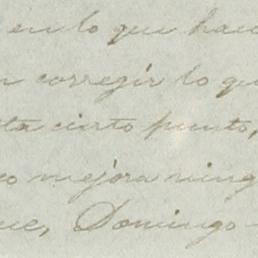 en lo que hac
corregir lo qu
ta cierto punto,
mejora ning
ue, Domingo